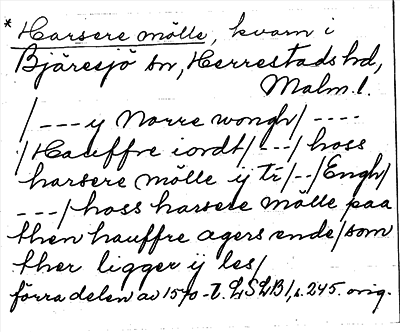 * Harsere mölle, kvarn i
Bjäresjö sn, Herrestads hd,
Malm. l.
/ --- y Norre wongh/ ----
/ Hauffre iordt/ --- / hoss
harsere mölle ij tr/--/Engh/
---/ hoss harsere mölle paa
then hauffre agers ende/som
ther ligger ij les/
förra delen av 1570-t. LSLB1, s. 245. orig.